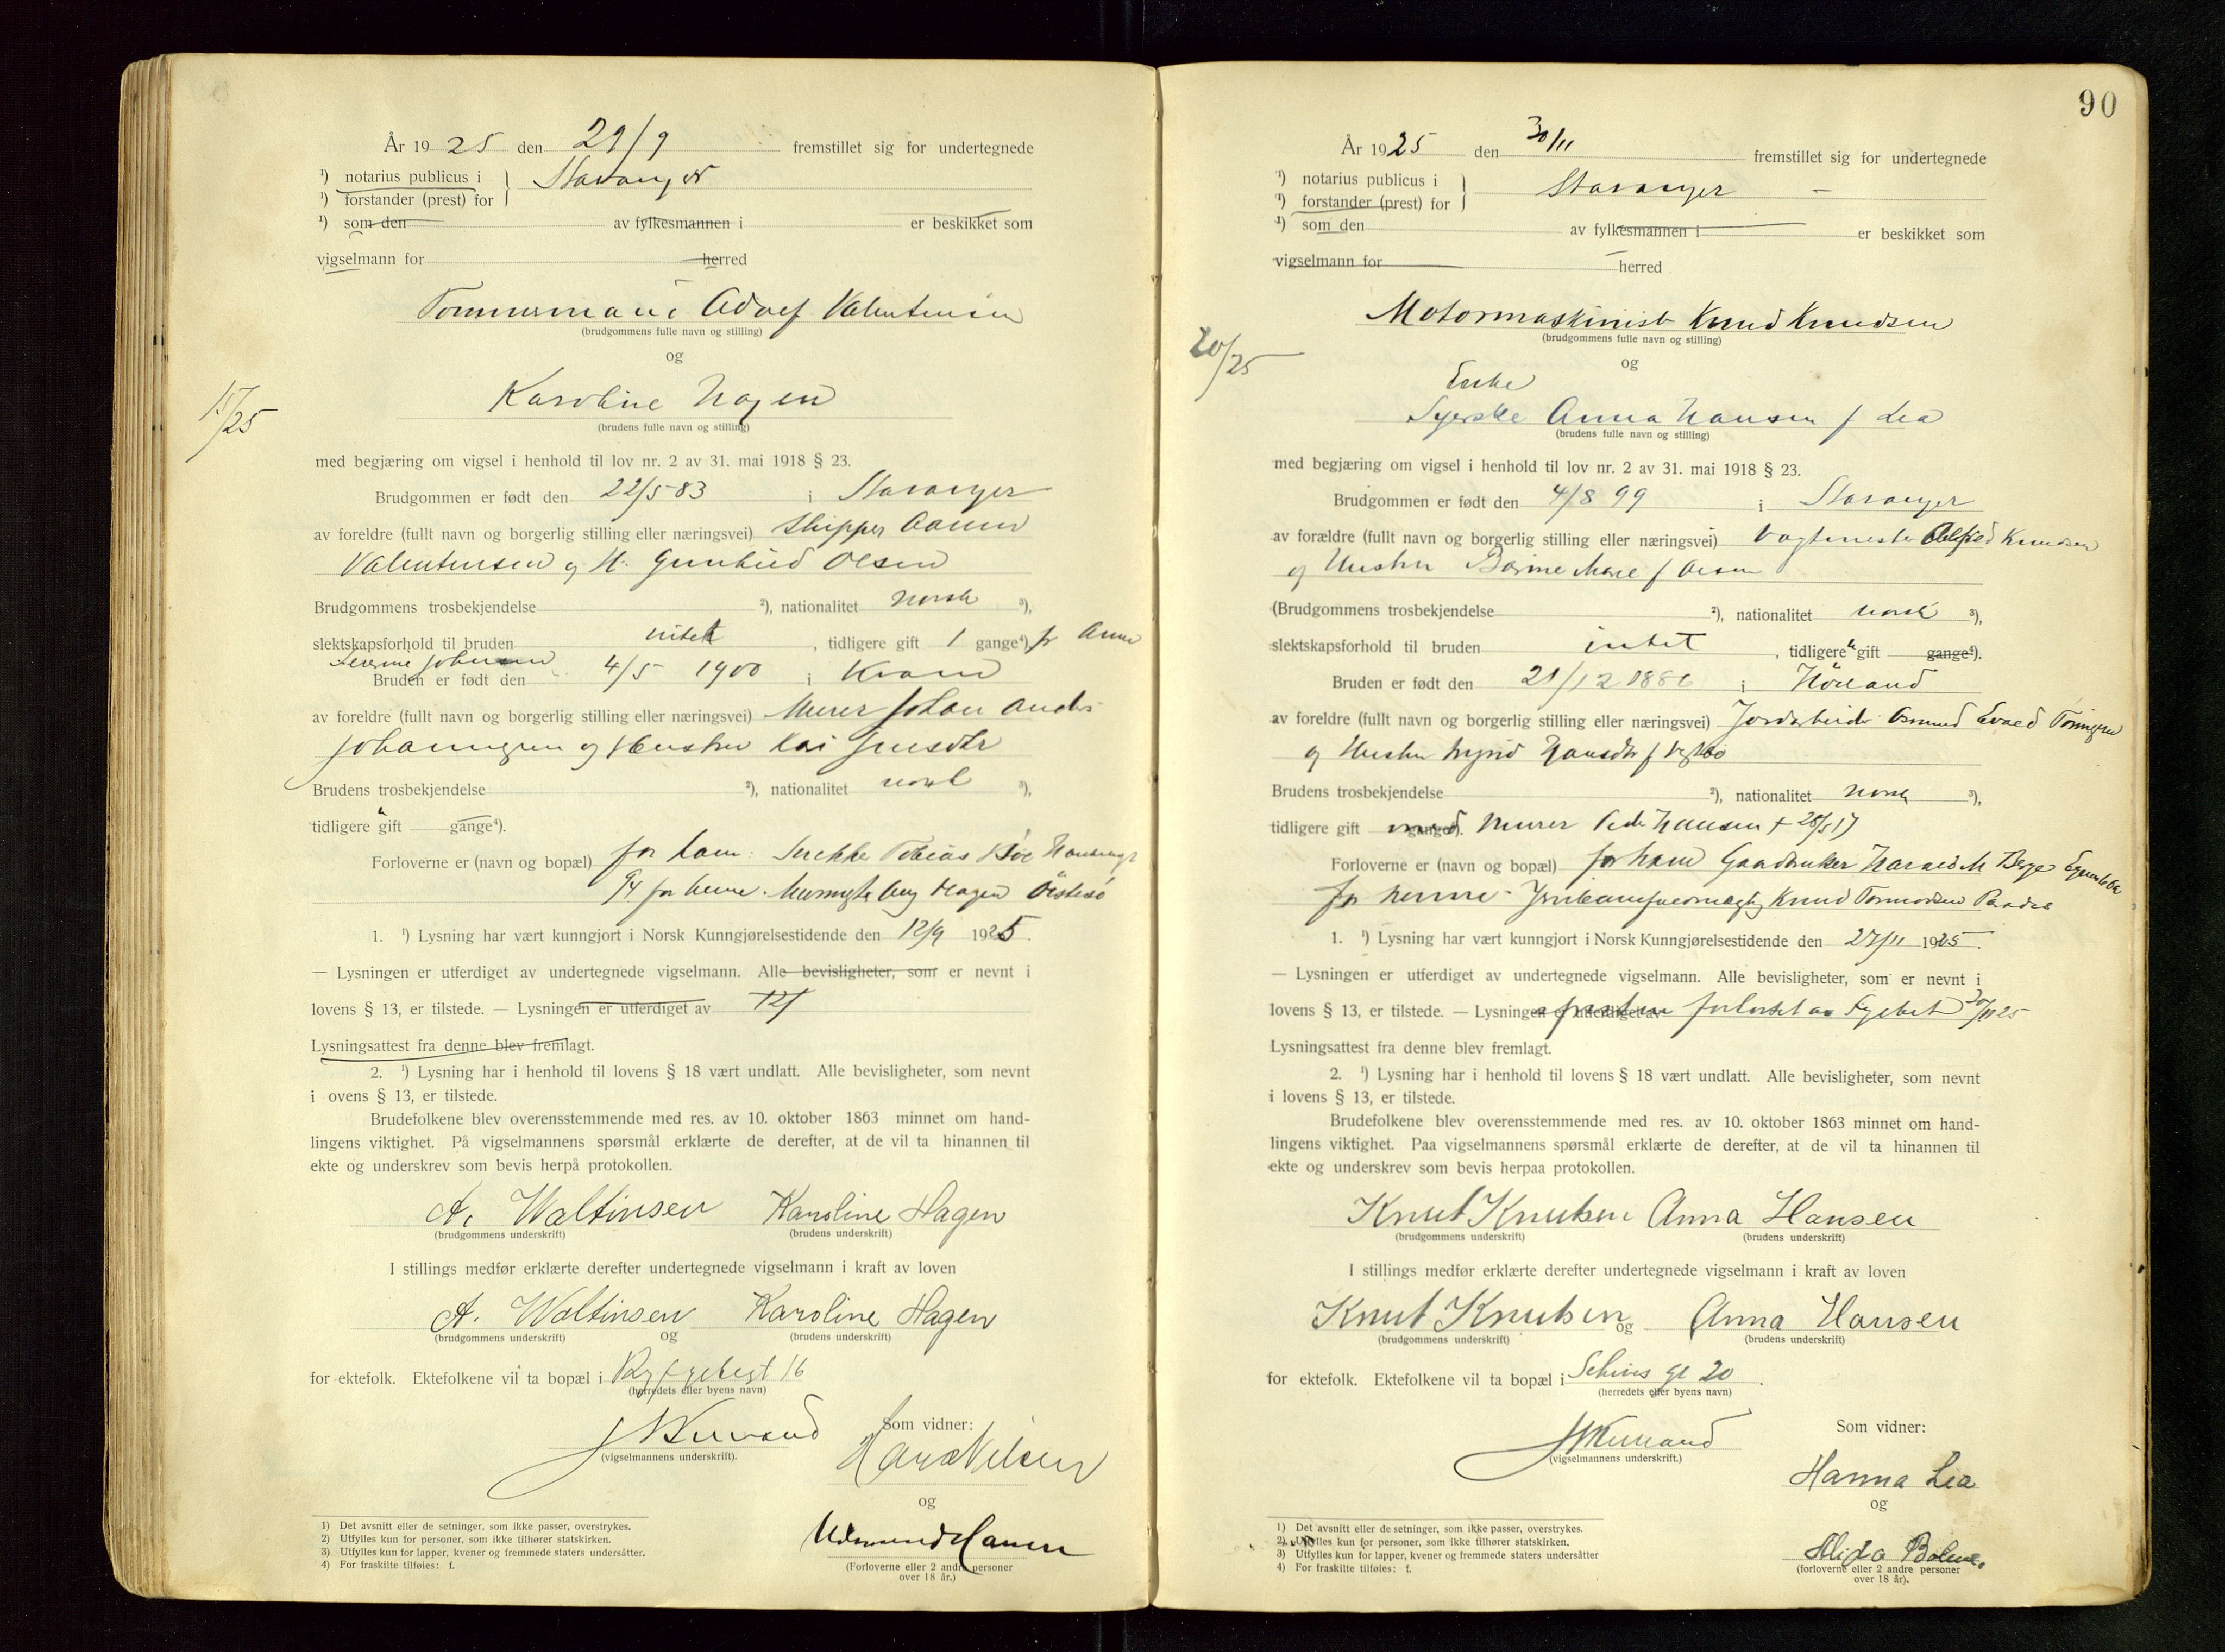 År 1925 den 29/9 fremstillet sig for undertegnede
¹) notarius publicus i
Stavanger
¹) forstander (prest) for
¹) som den av fylkesmannen i er beskikket som
vigselmann for herred
Tømmermann Adolf Valentinsen
(brudgommens fulle navn og stilling)
og
Karoline Hagen
(brudens fulle navn og stilling)
15/25
med begjæring om vigsel i henhold til lov nr. 2 av 31. mai 1918 § 23.
Brudgommen er født den 22/5 83 i Stavanger
av foreldre (fullt navn og borgerlig stilling eller næringsvei) Skipper
Valentinsen og H. Olsen
Brudgommens trosbekjendelse ²), nationalitet norsk ³),
slektskapsforhold til bruden intet, tidligere gift 1 gange⁴) fr Anna
Severine Johnsen
Bruden er født den 4/5 1900 i Kvam
av foreldre (fullt navn og borgerlig stilling eller næringsvei) Murer Johan Anders
Johannesen og Hustru Kari Jensdtr
Brudens trosbekjendelse ²), nationalitet norsk ³),
tidligere gift gange⁴).
Forloverne er (navn og bopæl) for ham: Snekker Tobias
for henne: Hagen
1. ¹) Lysning har vært kunngjort i Norsk Kunngjørelsestidende den 12/9 1925.
— Lysningen er utferdiget av undertegnede vigselmann. Alle bevisligheter, som er nevnt i
lovens § 13, er tilstede. — Lysningen er utferdiget av
Lysningsattest fra denne blev fremlagt.
2. ¹) Lysning har i henhold til lovens § 18 vært undlatt. Alle bevisligheter, som nevnt
i ovens § 13, er tilstede.
Brudefolkene blev overensstemmende med res. av 10. oktober 1863 minnet om hand-
lingens viktighet. På vigselmannens spørsmål erklærte de derefter, at de vil ta hinannen til
ekte og underskrev som bevis herpå protokollen.
A. Waltinsen Karoline Hagen
(brudgommens underskrift) (brudens underskrift)
I stillings medfør erklærte derefter undertegnede vigselmann i kraft av loven
A. Waltinsen Karoline Hagen
(brudgommens underskrift) og (brudens underskrift)
for ektefolk. Ektefolkene vil ta bopæl i 16
(herredets eller byens navn)
Som vidner:
(vigselmannens underskrift).
og
(Forloverne eller 2 andre personer
over 18 år.)
1) Det avsnitt eller de setninger, som ikke passer, overstrykes.
2) Utfylles kun for personer, som ikke tilhører statskirken.
3) Utfylles kun for lapper, kvener og fremmede staters undersåtter.
4) For fraskilte tilføies: f.
90
År 1925 den 30/11 fremstillet sig for undertegnede
¹) notarius publicus i
Stavanger
¹) forstander (prest) for
¹) som den av fylkesmannen i er beskikket som
vigselmann for herred
Motormaskinist Knud Knudsen
(brudgommens fulle navn og stilling)
20/25
og
Enke
Syerske Anna Hansen f Lea
(brudens fulle navn og stilling)
med begjæring om vigsel i henhold til lov nr. 2 av 31. mai 1918 § 23.
Brudgommen er født den 4/8 99 i Stavanger
av forældre (fullt navn og borgerlig stilling eller næringsvei) Vagtmester Knudsen
og Hustru f Olsen
(Brudgommens trosbekjendelse ²), nationalitet norsk ³),
slektskapsforhold til bruden intet, tidligere gift gange⁴).
Bruden er født den 21/12 1886 i
av foreldre (fullt navn og borgerlig stilling eller næringsvei) Jordarbeider
og Hustru Hansdtr f
Brudens trosbekjendelse ²), nationalitet norsk ³),
tidligere gift gange⁴). med Murer Peder Hansen + 28/5 17
Forloverne er (navn og bopæl) for ham Gaardbruker Harald M Berge
for henne Knud Tormodsen
1. ¹) Lysning har vært kunngjort i Norsk Kunngjørelsestidende den 27/11 1925.
— Lysningen er utferdiget av undertegnede vigselmann. Alle bevisligheter, som er nevnt i
lovens § 13, er tilstede. — Lysningen er utferdiget av
Lysningsattest fra denne blev fremlagt.
2. ¹) Lysning har i henhold til lovens § 18 vært undlatt. Alle bevisligheter, som nevnt
i lovens § 13, er tilstede.
Brudefolkene blev overensstemmende med res. av 10. oktober 1863 minnet om hand-
lingens viktighet. Paa vigselmannens spørsmål erklærte de derefter, at de vil ta hinannen til
ekte og underskrev som bevis herpaa protokollen.
Knut Knutsen Anna Hansen
(brudgommens underskrift) (brudens underskrift)
I stillings medfør erklærte derefter undertegnede vigselmann i kraft av loven
Knut Knutsen og Anna Hansen
(brudgommens underskrift) (brudens underskrift)
for ektefolk. Ektefolkene vil ta bopæl i gt 20.
(herredets eller byens navn)
Som vidner:
(vigselmannens underskrift.)
Hanna Lea
og
(forloverne eller 2 andre personer
over 18 år).
1) Det avsnitt eller de setninger, som ikke passer, overstrykes.
2) Utfylles kun for personer, som ikke tilhører statskirken.
3) Utfylles kun for lapper, kvener og fremmede staters undersåtter
4) For fraskilte tilføies: f.